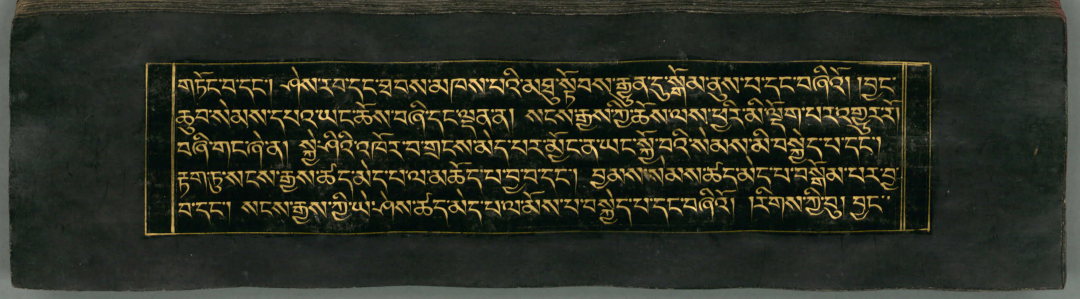 གཏོང་བ་དང་། ཤེས་རབ་དང་ཐབས་མཁས་པའི་མཐུ་སྟོབས་རྒྱུན་དུ་སྒོམ་ནུས་པ་དང་བཞིའོ། །བྱང་
ཆུབ་སེམས་དཔའ་ཡང་ཆོས་བཞི་དང་ལྡན་ན། སངས་རྒྱས་ཀྱི་ཆོས་ལས་ཕྱིར་མི་ལྡོག་པར་འགྱུར་རོ།
བཞི་གང་ཞེ་ན། སྐྱེ་ཤིའི་འཁོར་བ་གྲངས་མེད་པར་མྱོང་ན་ཡང་སྐྱོ་བའི་སེམས་མི་བསྐྱེད་པ་དང་།
རྟག་ཏུ་སངས་རྒྱས་ཚད་མེད་པ་ལ་མཆོད་པ་བྱ་བ་དང་། བྱམས་སེམས་ཚད་མེད་པ་བསྒོམ་པར་བྱ་
བ་དང་། སངས་རྒྱས་ཀྱི་ཡེ་ཤས་ཚད་མེད་པ་ལ་མོས་པ་བསྐྱེད་པ་དང་བཞིའོ། །རིགས་ཀྱི་བུ། བྱང་